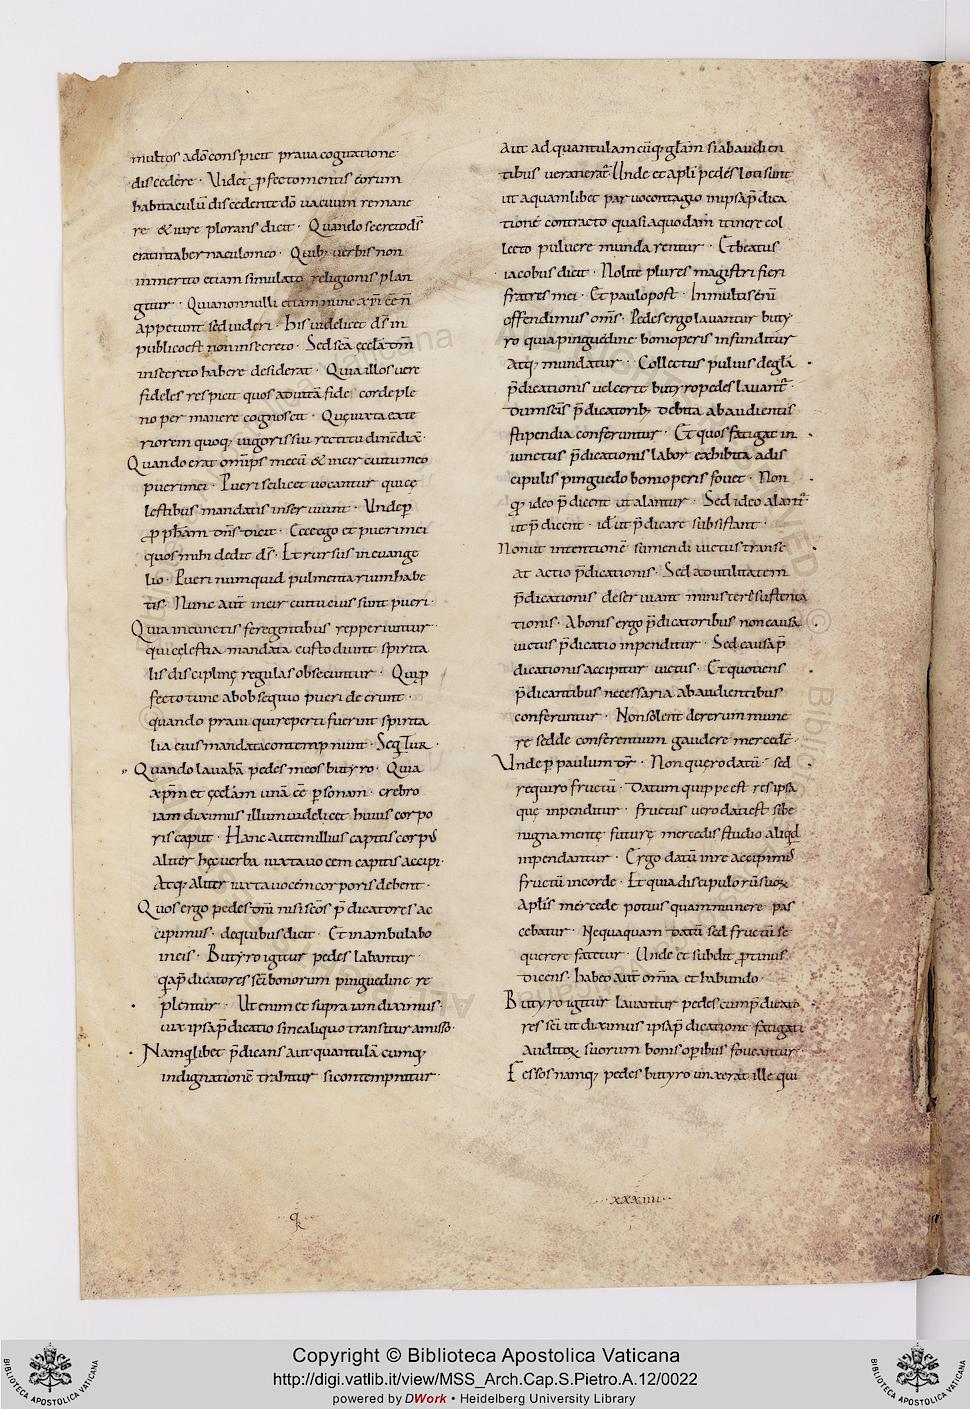 multos adō conspicit praua cogitatione·
discedere· Videt ꝓfecto mentis eorum
habitaculū discedente dō uacuum remane
re & iure plorans dicit· Quando secreto ds̄
erat in tabernaculo meo· Quib; uerbis non
inmerito etiam simulatio religionis plan
gitur· Quia nonnulli etiam nunc xp̄i ēē n̄
appetunt sed uideri· His uidelicet ds̄ in
publico est non in secreto· Sed scā ęccła om̄
in secreto habere desiderat· Quia illos uere
fideles respicit quos aduitā fide corde ple
no permanere cognoscit· Quę iuxta exte
riorem quoq; uigoris sui rectitudinē dix̄·
Quando erat omīps mecū & in circuitu meo
pueri mei· Pueri scilicet uocantur qui cę
lestibus mandatis inseruiunt· Unde p̱
ꝓph̄am dn̄s dicit· Ecce ego et pueri mei
quos mihi dedit ds̄· Et rursus in euange
lio· Pueri numquid pulmentarium habe
tis· Nunc aūt in circuitu eius sunt pueri·
Quia in cunctis fere gentibus repperiuntur·
qui celestia mandata custodiunt spirita
lis disciplinę regulas obsecuntur· Qui ꝓ
fecto tunc ab obsequio pueri deerunt·
quando praui qui reperti fuerint spirita
lia eius mandata contempnunt· Sequitur·
Quando lauabā pedes meos butyro· Quia
xp̄m et ęccłam unā ēē personam· crebro
iam diximus illum uidelicet huius corpo
ris caput· Hanc autem illius capitis corpus
aliter hęc uerba iuxta uocem capitis accipi·
Atq; aliter iuxta uocēm corporis debent·
Quos ergo pedes dn̄i nisi scōs p̄dicatores ac
cipimus· de quibus dicit· Et inambulabo
in eis· Butyro igitur pedes labantur·
q̄a p̄dicatores sc̄i bonorum pinguedine re
plentur· Ut enim et supra iam diximus·
uix ipsa p̄dicatio sine aliquo transitur amisso·
Nam quilibet p̄dicans aut quantulā cumq;
indignationē trahitur si contempnitur·
q̄
k
Aut ad quantulamcūq; głam si ab audien
tibus ueneratur· Unde et apłi pedes loti sunt
ut a quamlibet paruo contagio in ipsa p̄dica
tione contracto quasi a quodam itinere col
lecto puluere mundarentur· Et beatus
iacobus dicit· Nolite plures magistri fieri
fratres mei· Et paulo post· In multis enī
offendimus oms̄· Pedes ergo lauantur buty
ro quia pinguedine boni operis infunditur
Atq; mundatur· Collectus puluis de głā
p̄dicationis uel certe butyro pedes lauant̄·
dum scīs p̄dicatorib; debita ab audientis
stipendia conferuntur· Et quos fatigat in
iunctus p̄dicationis labor exhibita a dis
cipulis pinguedo boni operis fouet· Non
q; ideo p̄dicent ut alantur· Sed ideo alant̄·
ut p̄dicent· id ut p̄dicare subsistant·
Non ut intentionē sumendi uictus transe
at actio p̄dicationis· Sed ad utilitatem
p̄dicationis deseruiant ministeri sustenta
tionis· A bonis ergo p̄dicatoribus non causa
uictus p̄dicatio inpenditur· Sed causa p̄
dicationis accipitur uictus· Et quotiens
p̄dicantibus necessaria ab audientibus
conferuntur· Non solent de rerum mune
re sed de conferentium gaudere mercedē·
Unde p̱ paulum dr̄· Non quęro datū· sed
requiro fructū· Datum quippe est res ipsa
quę inpenditur· fructus uero dati est si be
nigna mente futurę mercedis studio aliqđ
inpendantur· Ergo datū in re accipimus
fructū in corde· Et quia discipulorū suoꝝ
Apłis mercede potius quam munere pas
cebatur· Nequaquam datū sed fructū se
querere fatetur· Unde et subdit ꝓtinus
dicens· habeo aūt omnia et habundo·
Butyro igitur lauantur pedes cum p̄dicato
res sc̄i ut diximus ipsa p̄dicatione fatigati
auditoꝝ suorum bonis operibus foueantur·
Fessos namq; pedes butyro unxerat ille qui
·xxxiiii·
Copyright © Biblioteca Apostolica Vaticana
http://digi.vatlib.it/view/MSS_Arch.Cap.S.Pietro.A.12/0022
powered by DWork • Heidelberg University Library
BIBLIOTECA APOSTOLICA VATICANA
BIBLIOTECA APOSTOLICA VATICANA